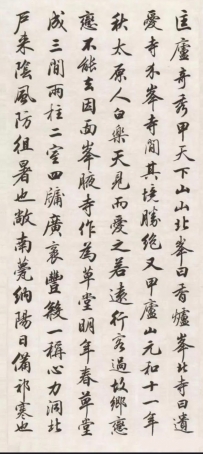 匡廬奇秀甲天下山山北峯曰香爐峯北寺曰遺
愛寺介峯寺間其境勝絕又甲廬山元和十一年
秋太原人白樂天見而愛之若遠行客過故鄉戀
戀不能去因面峯腋寺作為草堂明年春草堂
成三間兩柱二室四牖廣袤豐殺一稱心力洞北
戶来陰風防徂暑也敞南甍納陽日備祁寒也